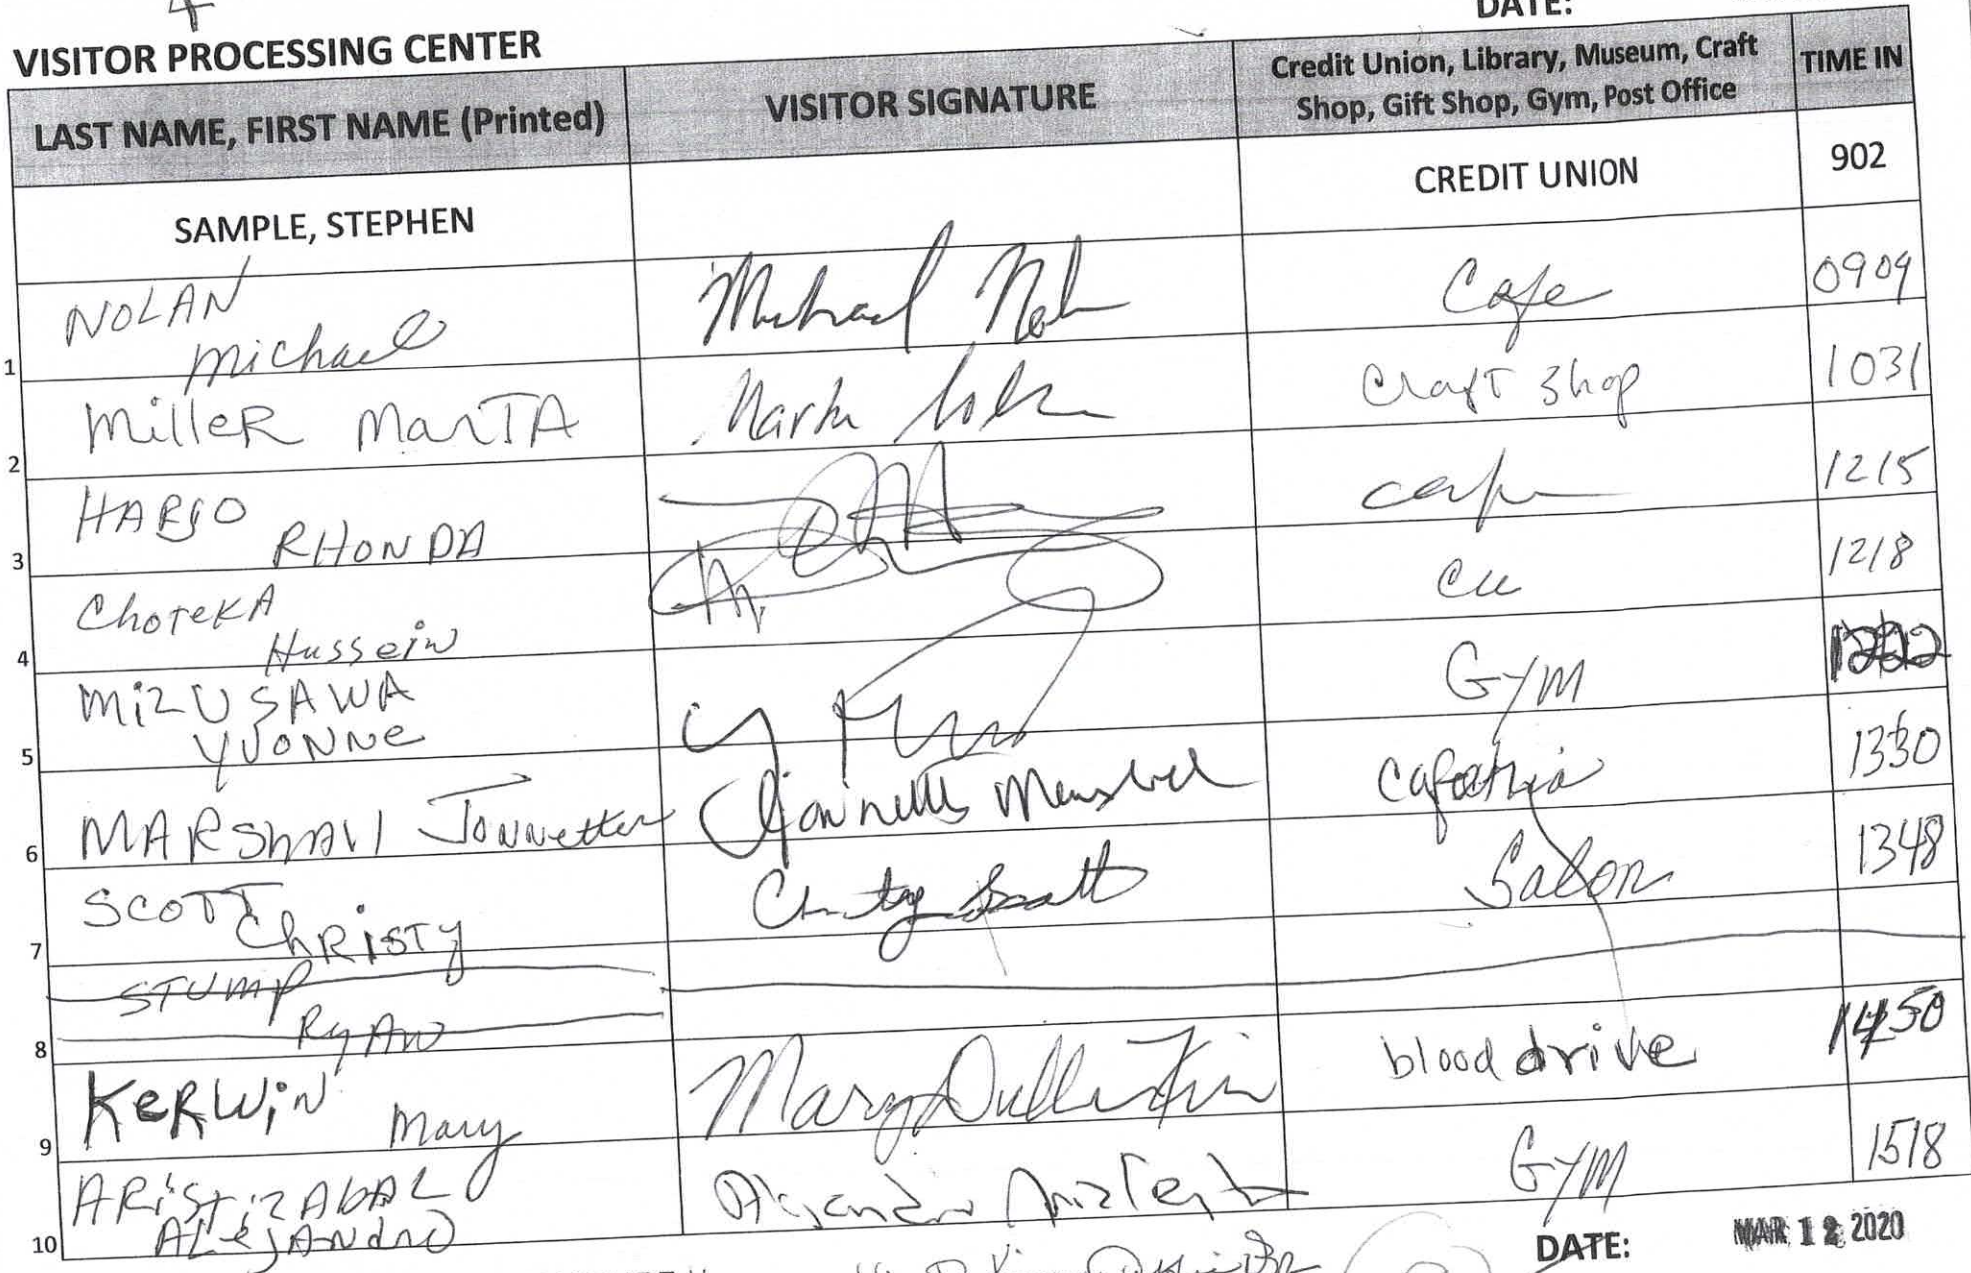 DATE:
VISITOR PROCESSING CENTER
LAST NAME, FIRST NAME (Printed) VISITOR SIGNATURE Credit Union, Library, Museum, Craft Shop, Gift Shop, Gym, Post Office TIME IN
SAMPLE, STEPHEN CREDIT UNION 902
1 NOLAN Michael Michael Cafe 0909
2 Miller MarTA Marta Craft Shop 1031
3 HARJO RHONDA cafe 1215
4 ChoteKA Hussein CU 1218
5 MIZUSAWA YVONNE GYM
6 MARSHAll Jonnetter Marshall Cafeteria 1330
7 SCOTT ChRISTY Christy Scott Salon 1348
8 STUMP RyAN
9 KERWIN Mary Mary blood drive 1450
10 ARiSTizAbAL ALejANdrO Alejandro GYM 1518
DATE: MAR 12 2020